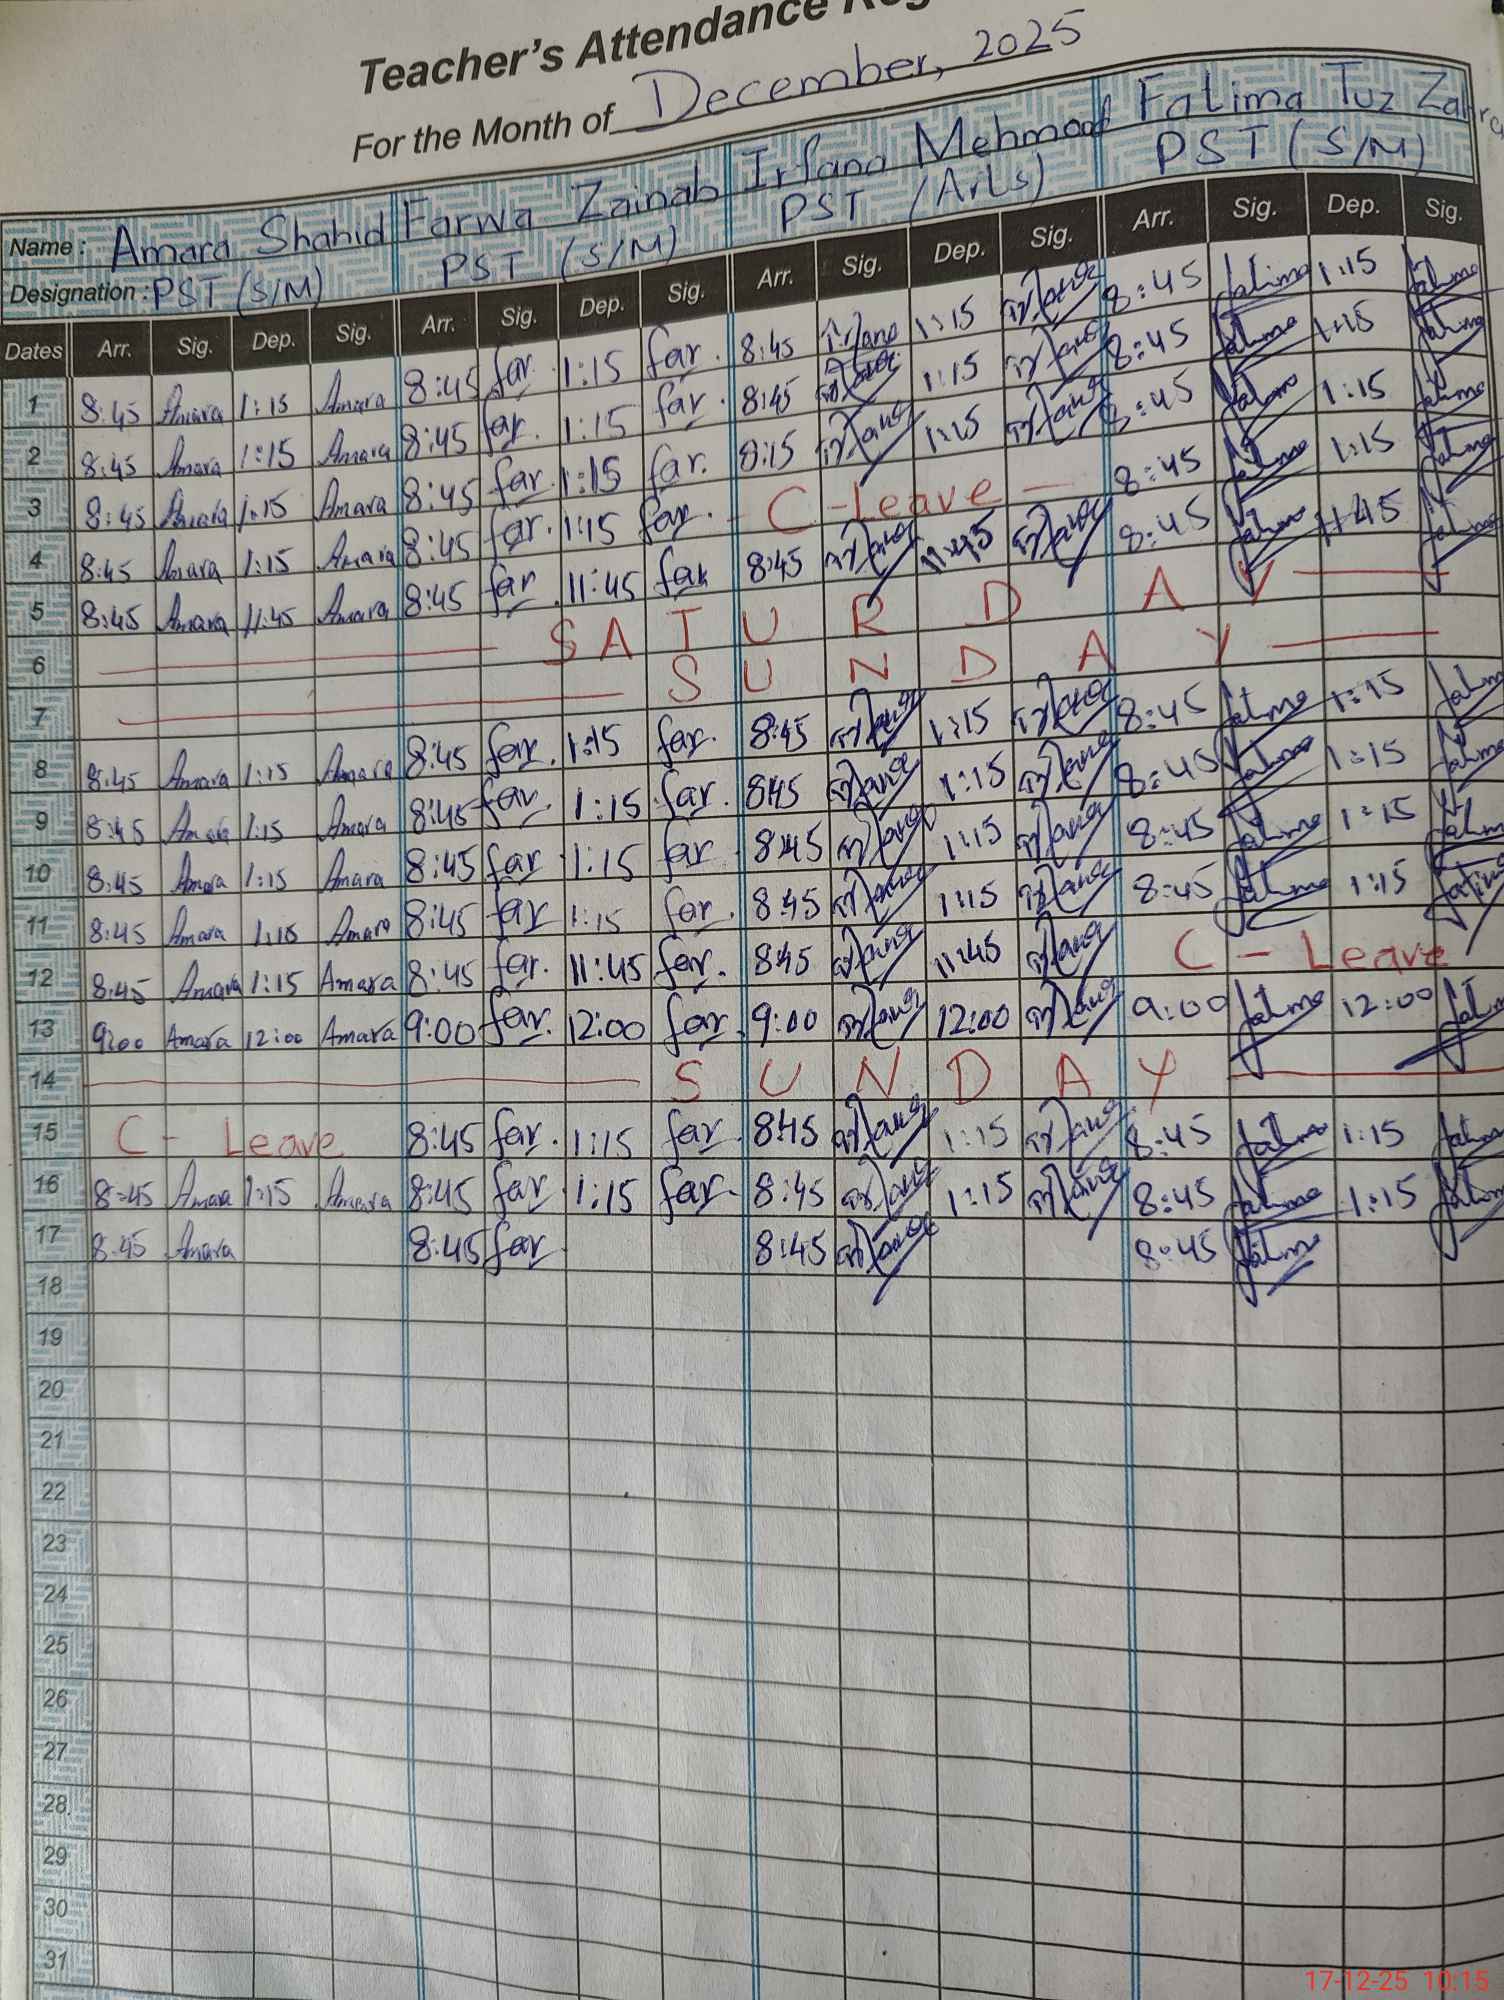 Teacher's Attendance Reg
For the Month of December, 2025
Name: Amara Shahid Farwa Zainab Irfana Mehmood Fatima Tuz Zahra
Designation: PST (S/M) PST (S/M) PST (Arts) PST (S/M)
Dates Arr. Sig. Dep. Sig. Arr. Sig. Dep. Sig. Arr. Sig. Dep. Sig. Arr. Sig. Dep. Sig.
1 8:45 Amara 1:15 Amara 8:45 far. 1:15 far. 8:45 Irfana 1:15 Irfana 8:45 fatima 1:15 fatima
2 8:45 Amara 1:15 Amara 8:45 far. 1:15 far. 8:45 Irfana 1:15 Irfana 8:45 fatima 1:15 fatima
3 8:45 Amara 1:15 Amara 8:45 far. 1:15 far. 8:15 Irfana 1:15 Irfana 8:45 fatima 1:15 fatima
4 8:45 Amara 1:15 Amara 8:45 far. 1:15 far. C-Leave 8:45 fatima 1:15 fatima
5 8:45 Amara 11:45 Amara 8:45 far 11:45 far 8:45 Irfana 11:45 Irfana 8:45 fatima 11:45 fatima
6 SATURDAY
7 SUNDAY
8 8:45 Amara 1:15 Amara 8:45 far. 1:15 far. 8:45 Irfana 1:15 Irfana 8:45 fatima 1:15 fatima
9 8:45 Amara 1:15 Amara 8:45 far. 1:15 far. 8:45 Irfana 1:15 Irfana 8:45 fatima 1:15 fatima
10 8:45 Amara 1:15 Amara 8:45 far 1:15 far 8:45 Irfana 1:15 Irfana 8:45 fatima 1:15 fatima
11 8:45 Amara 1:15 Amara 8:45 far 1:15 far. 8:45 Irfana 1:15 Irfana 8:45 fatima 1:15 fatima
12 8:45 Amara 1:15 Amara 8:45 far. 11:45 far. 8:45 Irfana 11:45 Irfana C - Leave
13 9:00 Amara 12:00 Amara 9:00 far. 12:00 far. 9:00 Irfana 12:00 Irfana 9:00 fatima 12:00 fatima
14 SUNDAY
15 C - Leave 8:45 far. 1:15 far 8:45 Irfana 1:15 Irfana 8:45 fatima 1:15 fatima
16 8:45 Amara 1:15 Amara 8:45 far 1:15 far. 8:45 Irfana 1:15 Irfana 8:45 fatima 1:15 fatima
17 8:45 Amara 8:45 far 8:45 Irfana 8:45 fatima
18
19
20
21
22
23
24
25
26
27
28
29
30
31
17-12-25 10:15